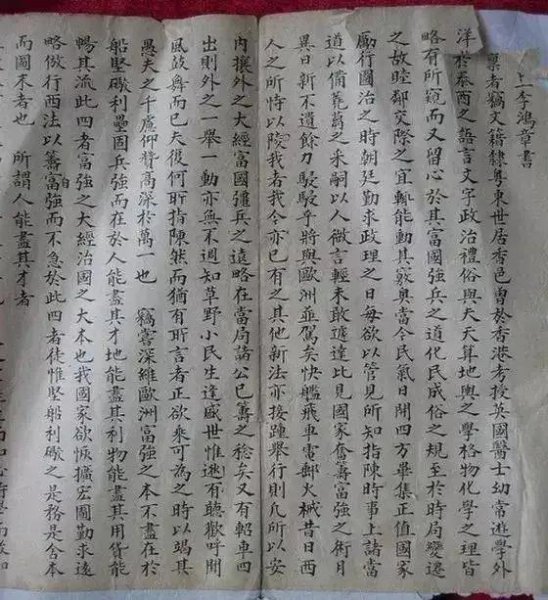 上李鴻章書
稟者竊文籍隸粵東世居香邑曾於香港考授英國醫士幼嘗遊學外
洋於泰西之語言文字政治禮俗與夫天算地輿之學格物化學之理皆
略有所窺而又留心於其富國強兵之道化民成俗之規至於時局變遷
之故睦鄰交際之宜輒能動其窾奧當今民氣日開四方畢集正值國家
勵行圖治之時朝廷勤求政理之日每欲以管見所知指陳時事上諸當
道以備蕘蒭之采嗣以人微言輕未敢遽達比見國家奮籌富強之術月
異日新不遺餘力駸駸乎將與歐洲並駕矣快艦飛車電郵火械昔日西
人之所恃以陵我者我今亦已有之其他新法亦接踵舉行則凡所以安
內攘外之大經富國彊兵之遠略在當局諸公已籌之稔矣又有軺車四
出則外之一舉一動亦無不週知草野小民生逢盛世惟逖有聽歡吁聞
風鼓舞而已夫復何所指陳然而猶有所言者正欲乘可為之時以竭其
愚夫之千慮仰贊高深於萬一也　竊嘗深維歐洲富強之本不盡在於
船堅礮利壘固兵強而在於人能盡其才地能盡其利物能盡其用貨能
暢其流此四者富強之大經治國之大本也我國家欲恢擴宏圖勤求遠
略倣行西法以籌富自強而不急於此四者徒惟堅船利礮之是務是舍本
而圖末者也　所謂人能盡其才者